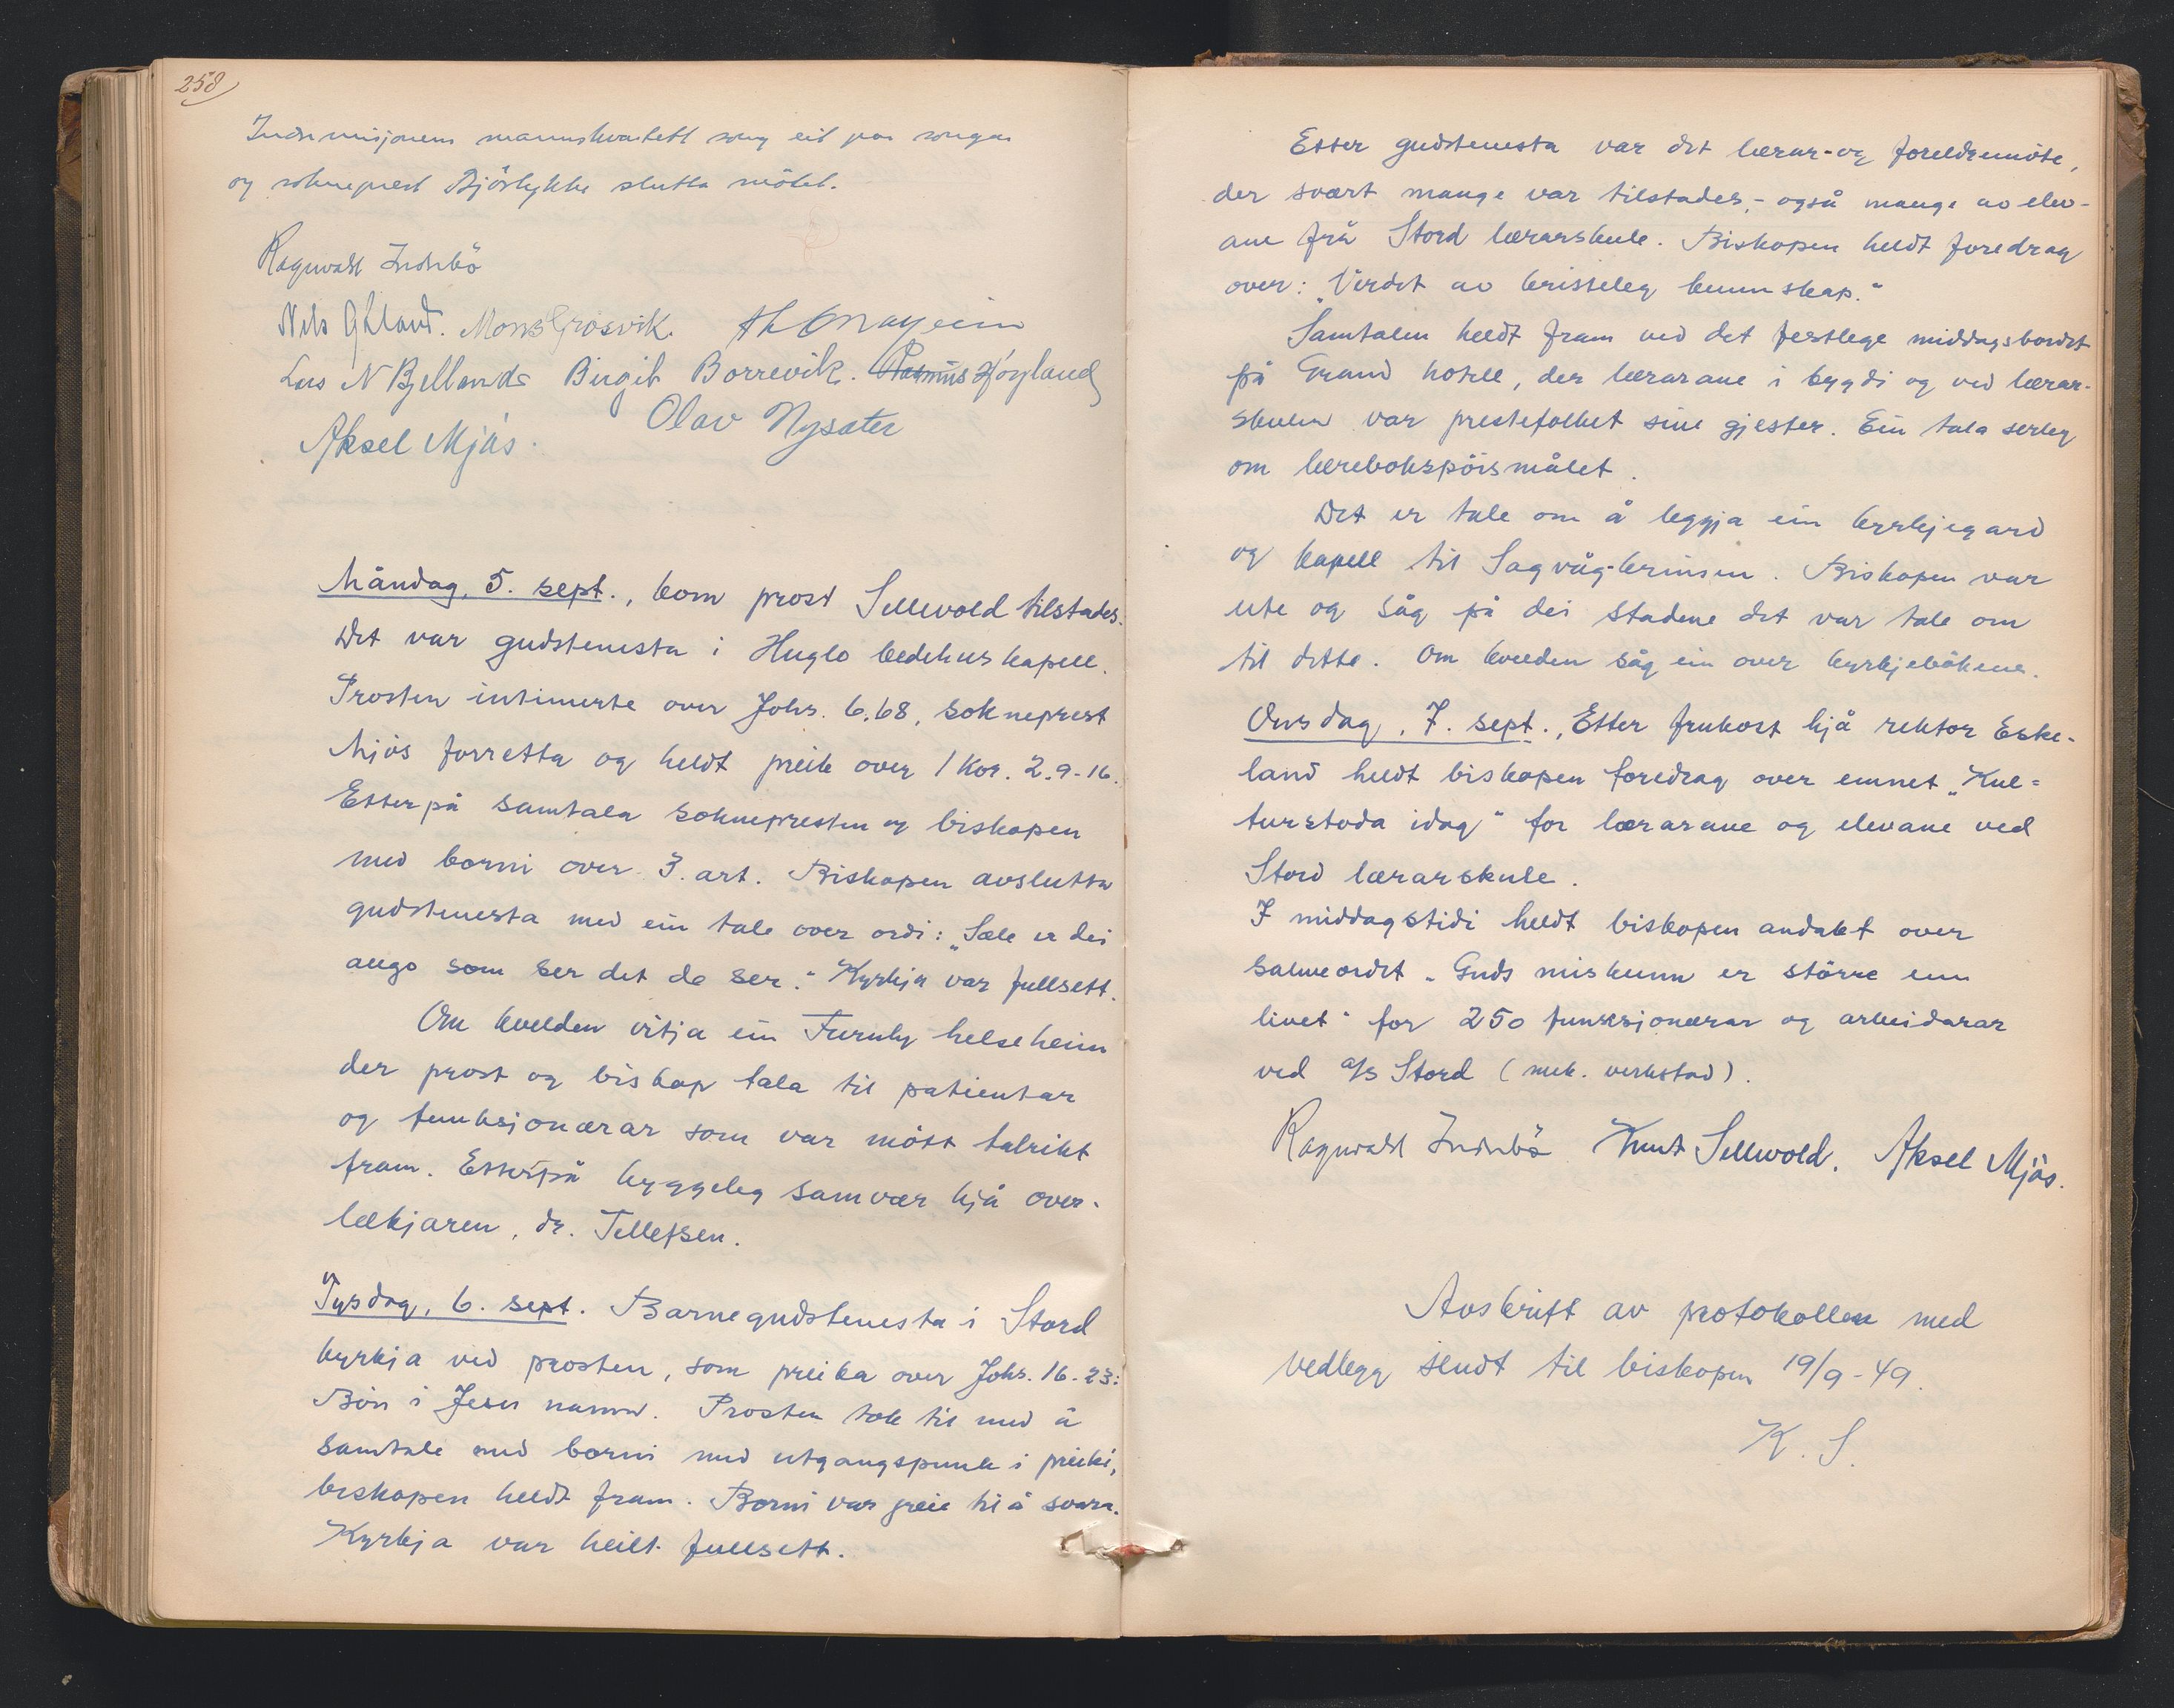 258
Indremisjonens mannskvartett song eit par songar
og sokneprest Bjørlykke slutta mötet.
Ragnvald Indrebö
Nils Økland. Mons Grosvik.
Lars N Bjelland Birgit Borrevik. Rasmus Höyland
Aksel Mjös. Olav Nysæter
Måndag, 5. sept., kom prost Sellevold tilstades.
Det var gudstenesta i Huglo bedehuskapell.
Prosten intimerte over Johs. 6.68, sokneprest
Mjös forretta og heldt preik over 1 Kor. 2.9-16.
Etterpå samtala soknepresten og biskopen
med borni over 3. art. Biskopen avslutta
gudstenesta med ein tale over ordi: „Sæle er dei
augo som ser det de ser." Kyrkja var fullsett.
Om kvelden vitja ein Furuly helseheim
der prost og biskop tala til patientar
og funksjonærar som var mött talrikt
fram. Etterpå hyggeleg samvær hjå over-
lækjaren, dr. Tellefsen.
Tysdag, 6. sept. Barnegudstenesta i Stord
kyrkja ved prosten, som preika over Johs. 16-23:
Bön i Jesu namn. Prosten tok til med å
samtale med borni med utgangspunk i preiki,
biskopen heldt fram. Borni var greie til å svara.
Kyrkja var heilt fullsett.
Etter gudstenesta var det lærar- og foreldremöte,
der svært mange var tilstades, - også mange av elev-
ane frå Stord lærarskule. Biskopen heldt foredrag
over: „Verdet av kristeleg kunnskap."
Samtalen heldt fram ved det festlege middagsbordet
på Grand hotell, der lærarane i bygdi og ved lærar-
skulen var prestefolket sine gjester. Ein tala serleg
om lærebokspörsmålet.
Det er tale om å leggja ein kyrkjegard
og kapell til Sagvåg-krinsen. Biskopen var
ute og såg på dei stadene det var tale om
til dette. Om kvelden såg ein over kyrkjebökene.
Onsdag, 7. sept., Etter frukost hjå rektor Eske-
land heldt biskopen foredrag over emnet „Kul-
turstoda idag" for lærarane og elevane ved
Stord lærarskule.
I middagstidi heldt biskopen andakt over
salmeordet „Guds miskunn er större enn
livet" for 250 funksjonærar og arbeidarar
ved a/s Stord (mek. verkstad).
Ragnvald Indrebö Knut Sellevold. Aksel Mjös.
Avskrift av protokollen med
vedlegg sendt til biskopen 19/9-49.
K. S.